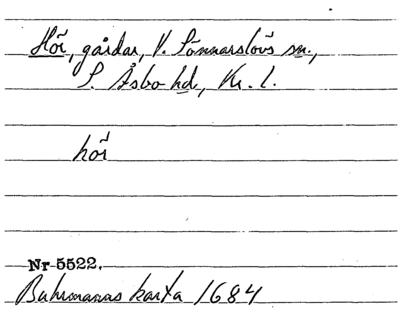 Höi, gårdar, V. Sönnarslövs sn.,
S. Åsbo hd, Kr. l.
höi
Nr 5522.
Buhrmanns karta 1684